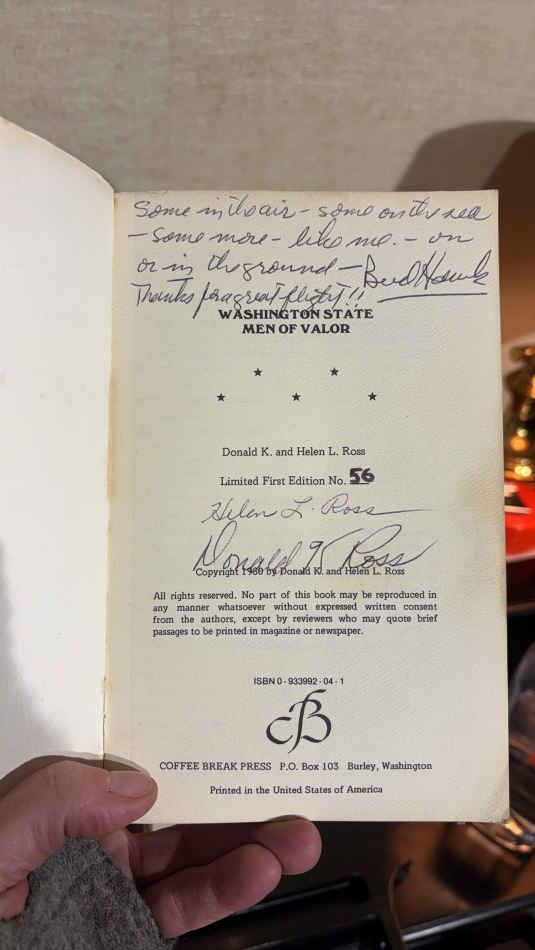 Some in the air - some on the sea
- some more - like me. - on
or in the ground - Bud Hawk
Thanks for a great flight!!
WASHINGTON STATE
MEN OF VALOR
★ ★
★ ★ ★
Donald K. and Helen L. Ross
Limited First Edition No. 56
Helen L. Ross
Donald K Ross
Copyright 1980 by Donald K. and Helen L. Ross
All rights reserved. No part of this book may be reproduced in
any manner whatsoever without expressed written consent
from the authors, except by reviewers who may quote brief
passages to be printed in magazine or newspaper.
ISBN 0-933992-04-1
CB
COFFEE BREAK PRESS P.O. Box 103 Burley, Washington
Printed in the United States of America